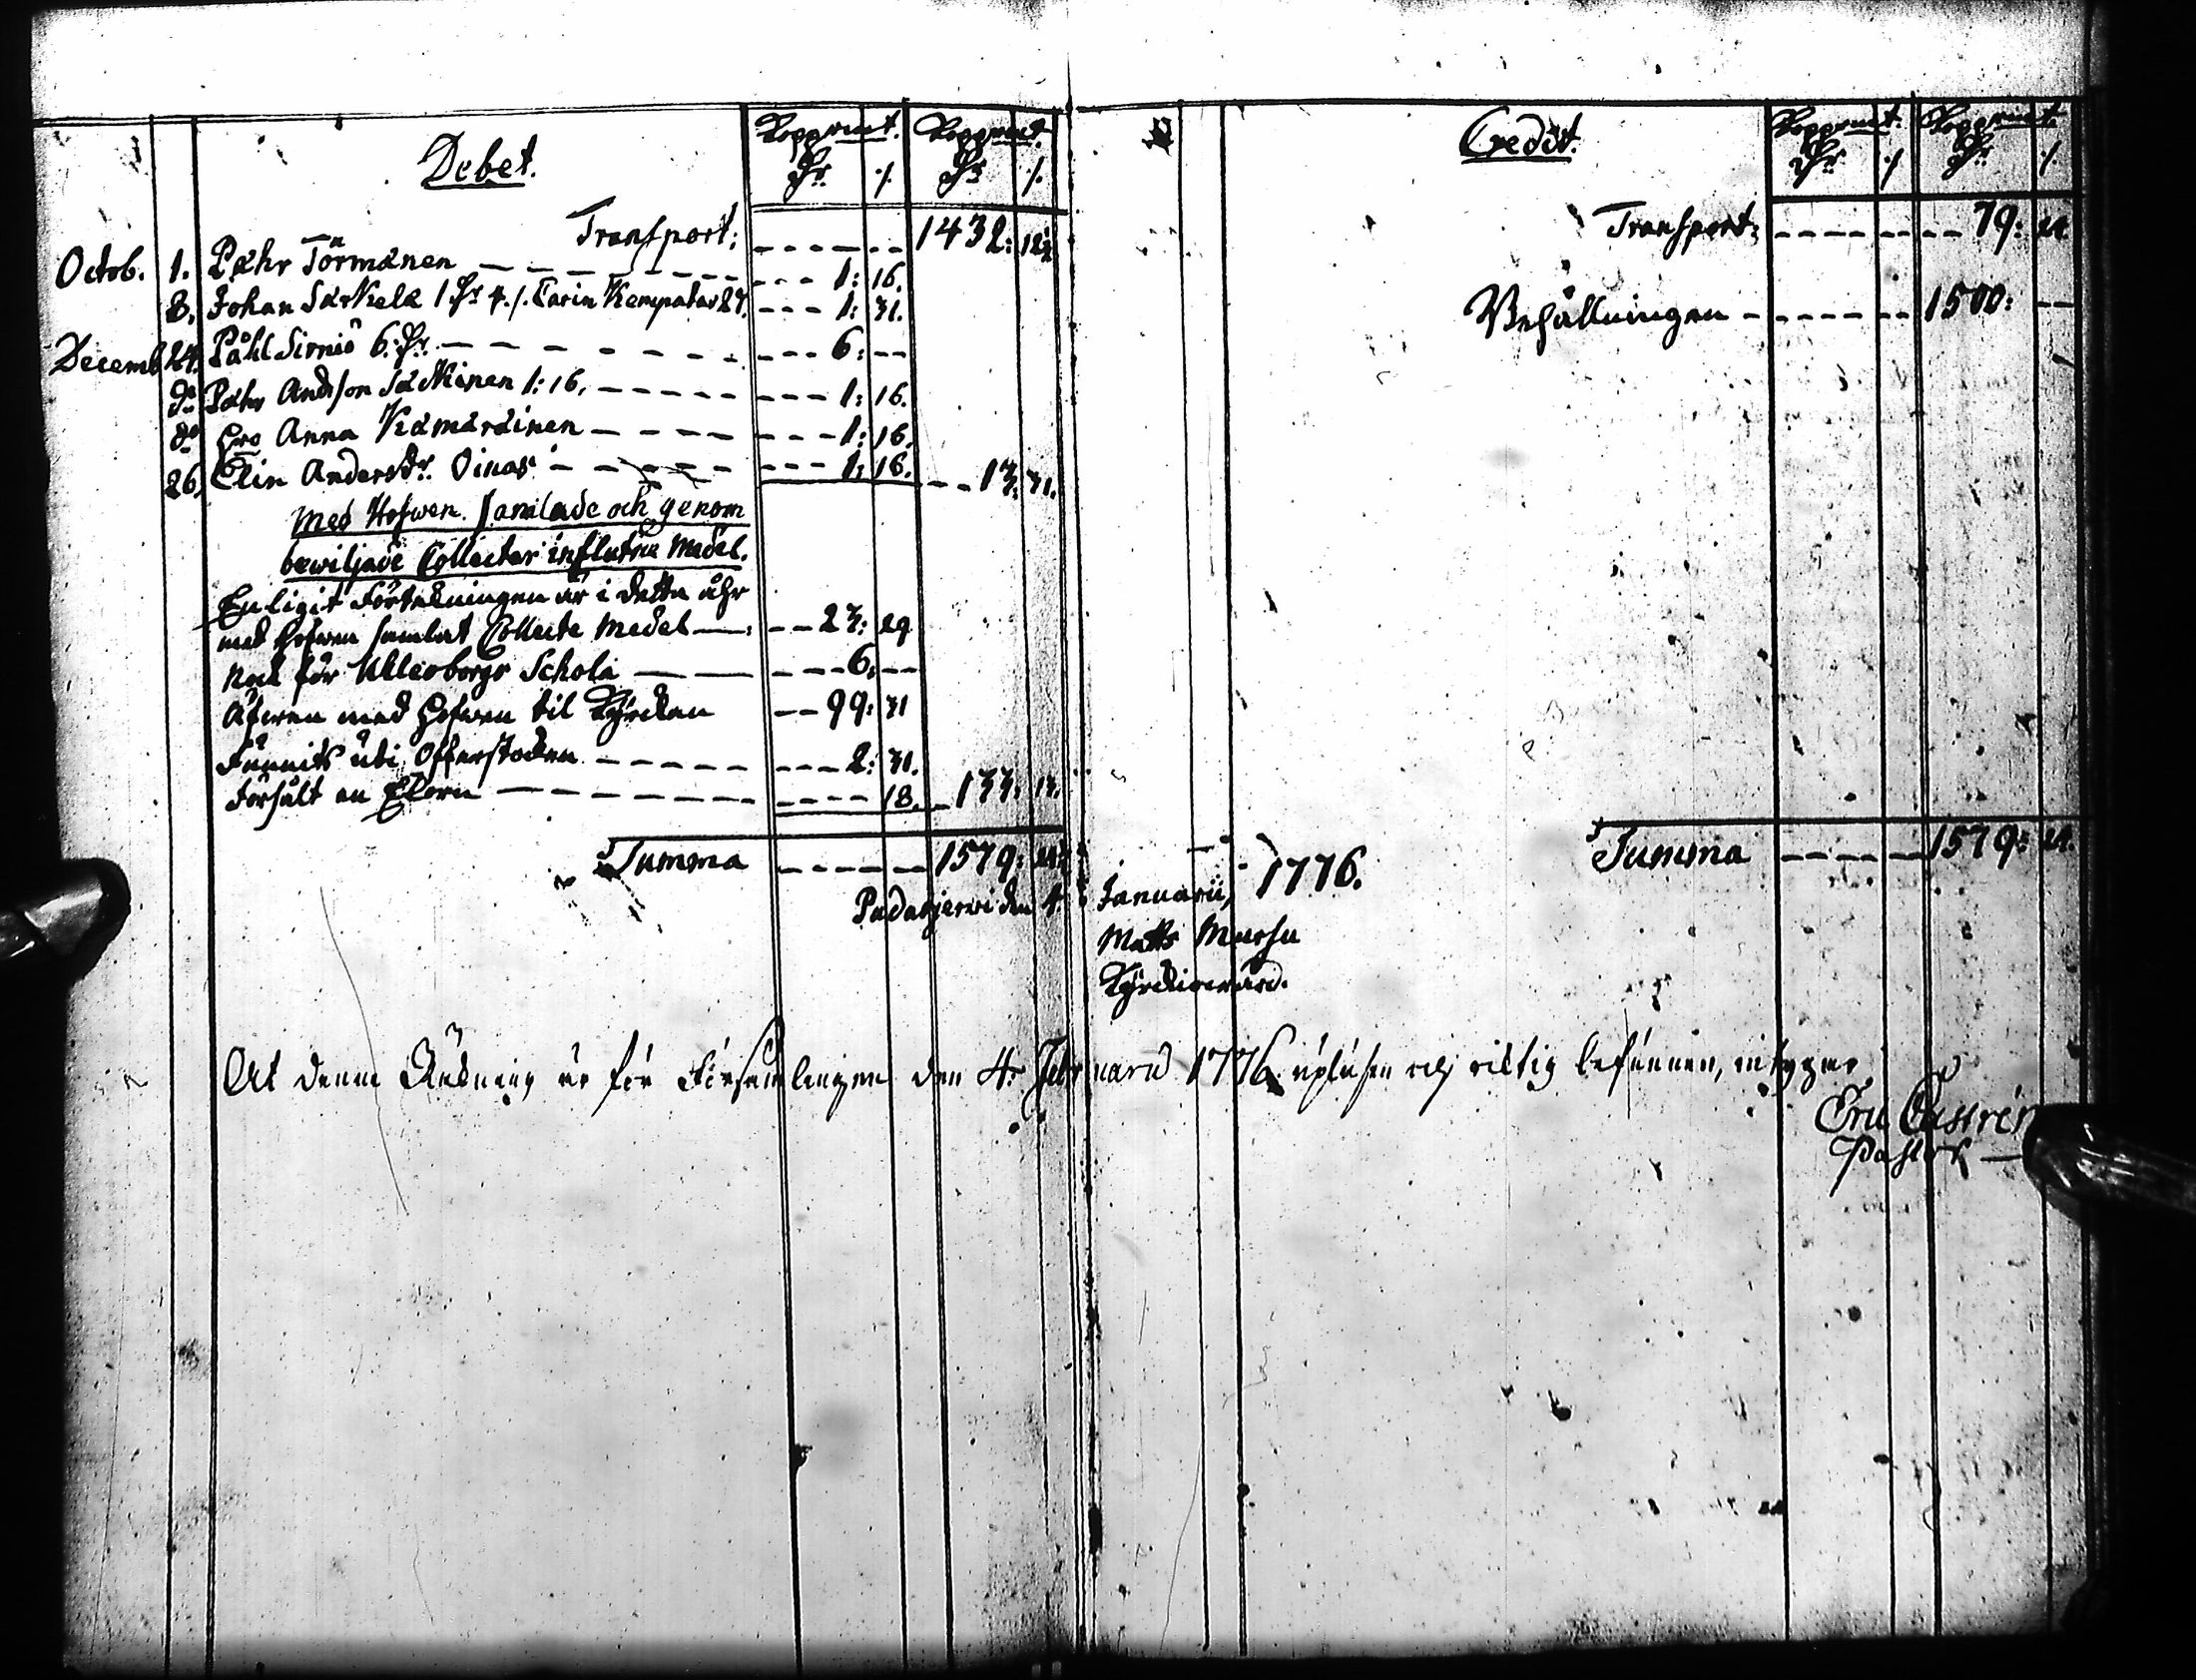 Debet.
Koppmt. Koppmt.
Dr. /. Dr. /.
Transport: 1432: 12½
Octob. 1. Pähr Törmänen 1: 16.
8. Johan Särkelä 1 Dr 4 /. Carin Kempatar 27. 1: 31.
Decemb 24. Påhl Sirniö 6. Dr. 6: --
do Pähr Andsson Säkkinen 1: 16. 1: 16.
do Hro Anna Kämäräinen 1: 16.
26. Elin Andersdr. Oinas 1: 16. 13: 31.
Med Hofwen samlade och genom
bewiljade Collecter influtne Medel.
Enligit Förtekningen är i detta åhr
med hofwen samlat Collecte Medel 23: 29
Nock för Uleoborgs Schola 6: --
Äfwen med Hofwen til Kyrckan 99: 31
Funnits uti Offerstocken 2: 31.
Försålt en 18. 133: 13.
Summa 1579: 24½
Pudasjerwi den 4.
Credit.
Koppmt. Koppmt.
Dr /. Dr /.
Transport: 79: 24
Behållningen 1500: --
Summa 1579: 24.
Januarii, 1776.
Matts Mursu
Kyrckiowärd.
At denna Räkning är för Församlingen den 4. Februarii 1776 upläsen och riktig befunnen, intygar
Eric Castrén
Pastor